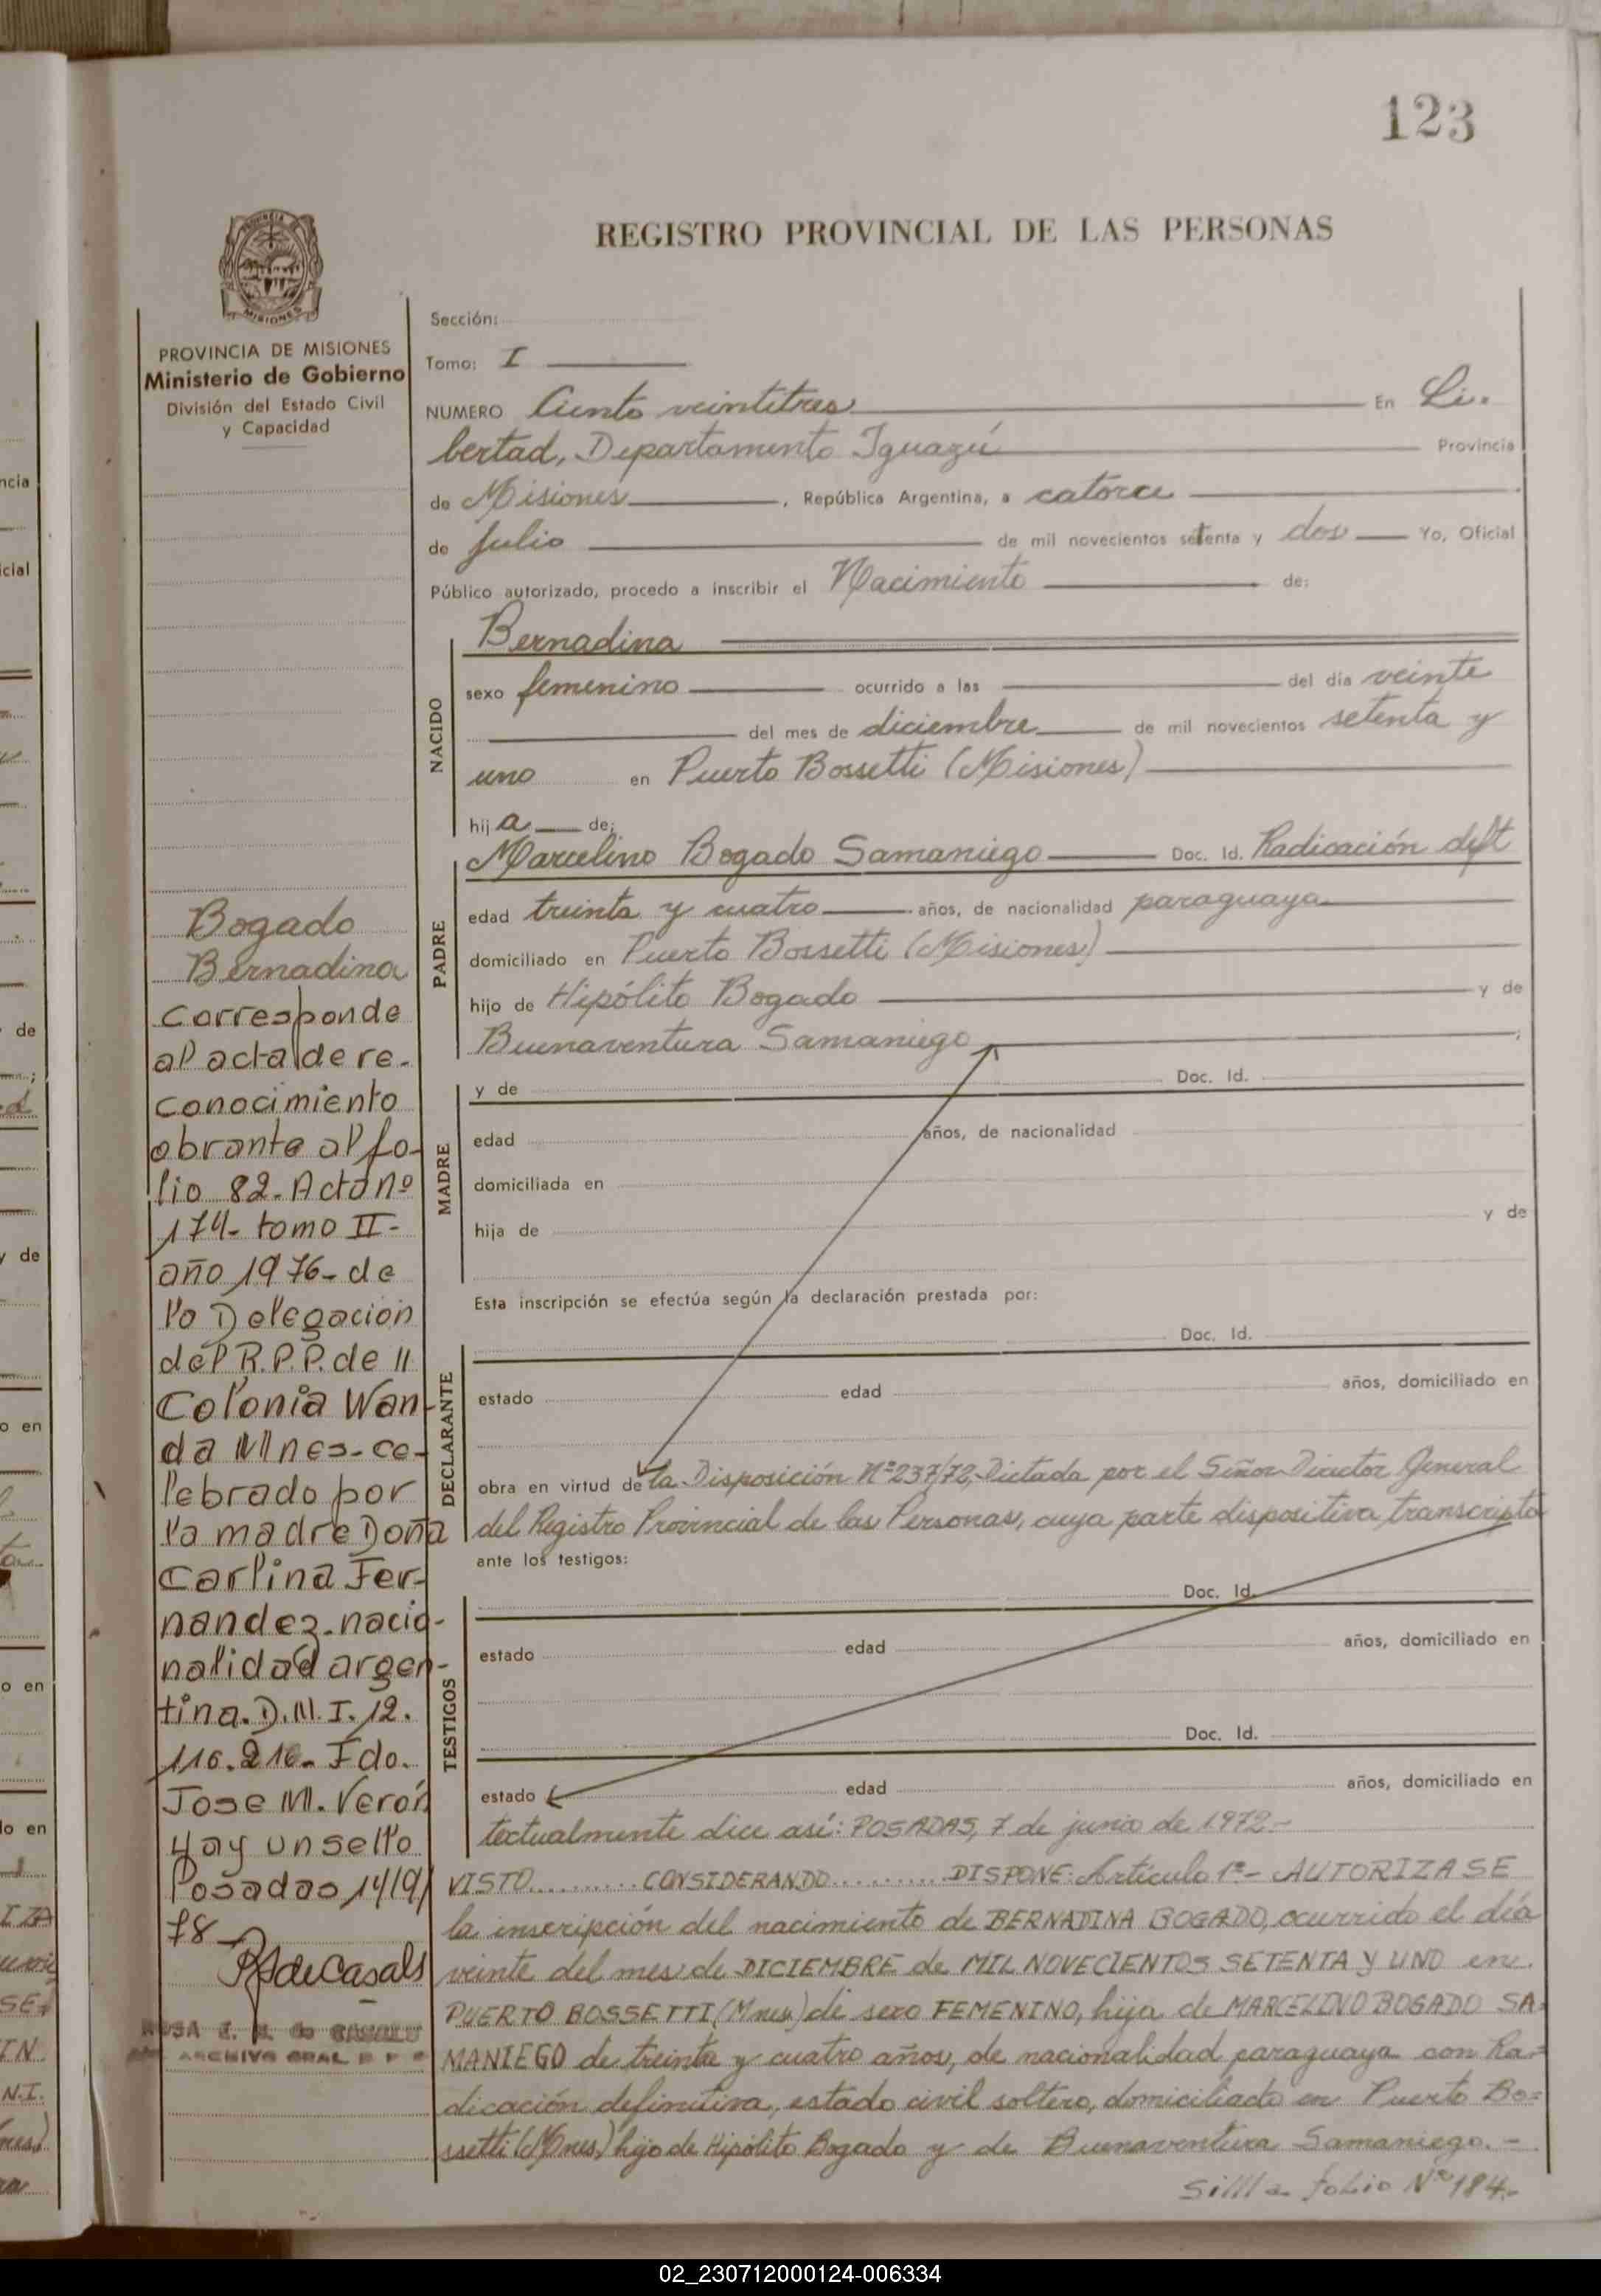 123
REGISTRO PROVINCIAL DE LAS PERSONAS
MISIONES
PROVINCIA DE MISIONES
Ministerio de Gobierno
División del Estado Civil
y Capacidad
Sección:
Tomo: I
NUMERO Ciento veintitres En Li.
bertad, Departamento Iguazú Provincia
de Misiones, República Argentina, a catorce
de Julio de mil novecientos setenta y dos Yo, Oficial
Público autorizado, procedo a inscribir el Nacimiento de:
NACIDO
Bernadina
sexo femenino ocurrido a las del día veinte
del mes de diciembre de mil novecientos setenta y
uno en Puerto Bossetti (Misiones)
hija de;
PADRE
Marcelino Bogado Samaniego Doc. Id. Radicación deft
edad treinta y cuatro años, de nacionalidad paraguaya
domiciliado en Puerto Bossetti (Misiones)
hijo de Hipólito Bogado y de
Buenaventura Samaniego;
MADRE
y de Doc. Id.
edad años, de nacionalidad
domiciliada en
hija de y de
Esta inscripción se efectúa según la declaración prestada por:
DECLARANTE
Doc. Id.
estado edad años, domiciliado en
obra en virtud de la Disposición Nº 237/72, Dictada por el Señor Director General
del Registro Provincial de las Personas, cuya parte dispositiva, transcripta
ante los testigos:
TESTIGOS
Doc. Id.
estado edad años, domiciliado en
Doc. Id.
estado edad años, domiciliado en
textualmente dice así: POSADAS, 7 de junio de 1972.-
VISTO......... CONSIDERANDO......... DISPONE: Artículo 1º- AUTORIZASE
la inscripción del nacimiento de BERNADINA BOGADO, ocurrido el día
veinte del mes de DICIEMBRE de MIL NOVECIENTOS SETENTA Y UNO en
PUERTO BOSSETTI (Mnes) de sexo FEMENINO, hija de MARCELINO BOGADO SA-
MANIEGO de treinta y cuatro años, de nacionalidad paraguaya con Ra=
dicación definitiva, estado civil soltero, domiciliado en Puerto Bo=
ssetti (Mnes) hijo de Hipólito Bogado y de Buenaventura Samaniego.-
folio Nº 184.-
Bogado
Bernadina
Corresponde
al acta de re-
conocimiento
obrante al fo-
lio 82. Acta nº
174- tomo II-
año 1976- de
la Delegación
del R.P.P. de 11
Colonia Wan-
da Mnes- ce-
lebrado por
la madre Doña
Carlina Fer-
nandez. nacio-
nalidad argen-
tina. D.N.I. 12.
116.216- Fdo.
Jose M. Verón
Hay un sello
Posadas 14/9/
78-
RSdeCasals
ROSA E. S. de CASALS
ARCHIVO GRAL R P P
02_230712000124-006334